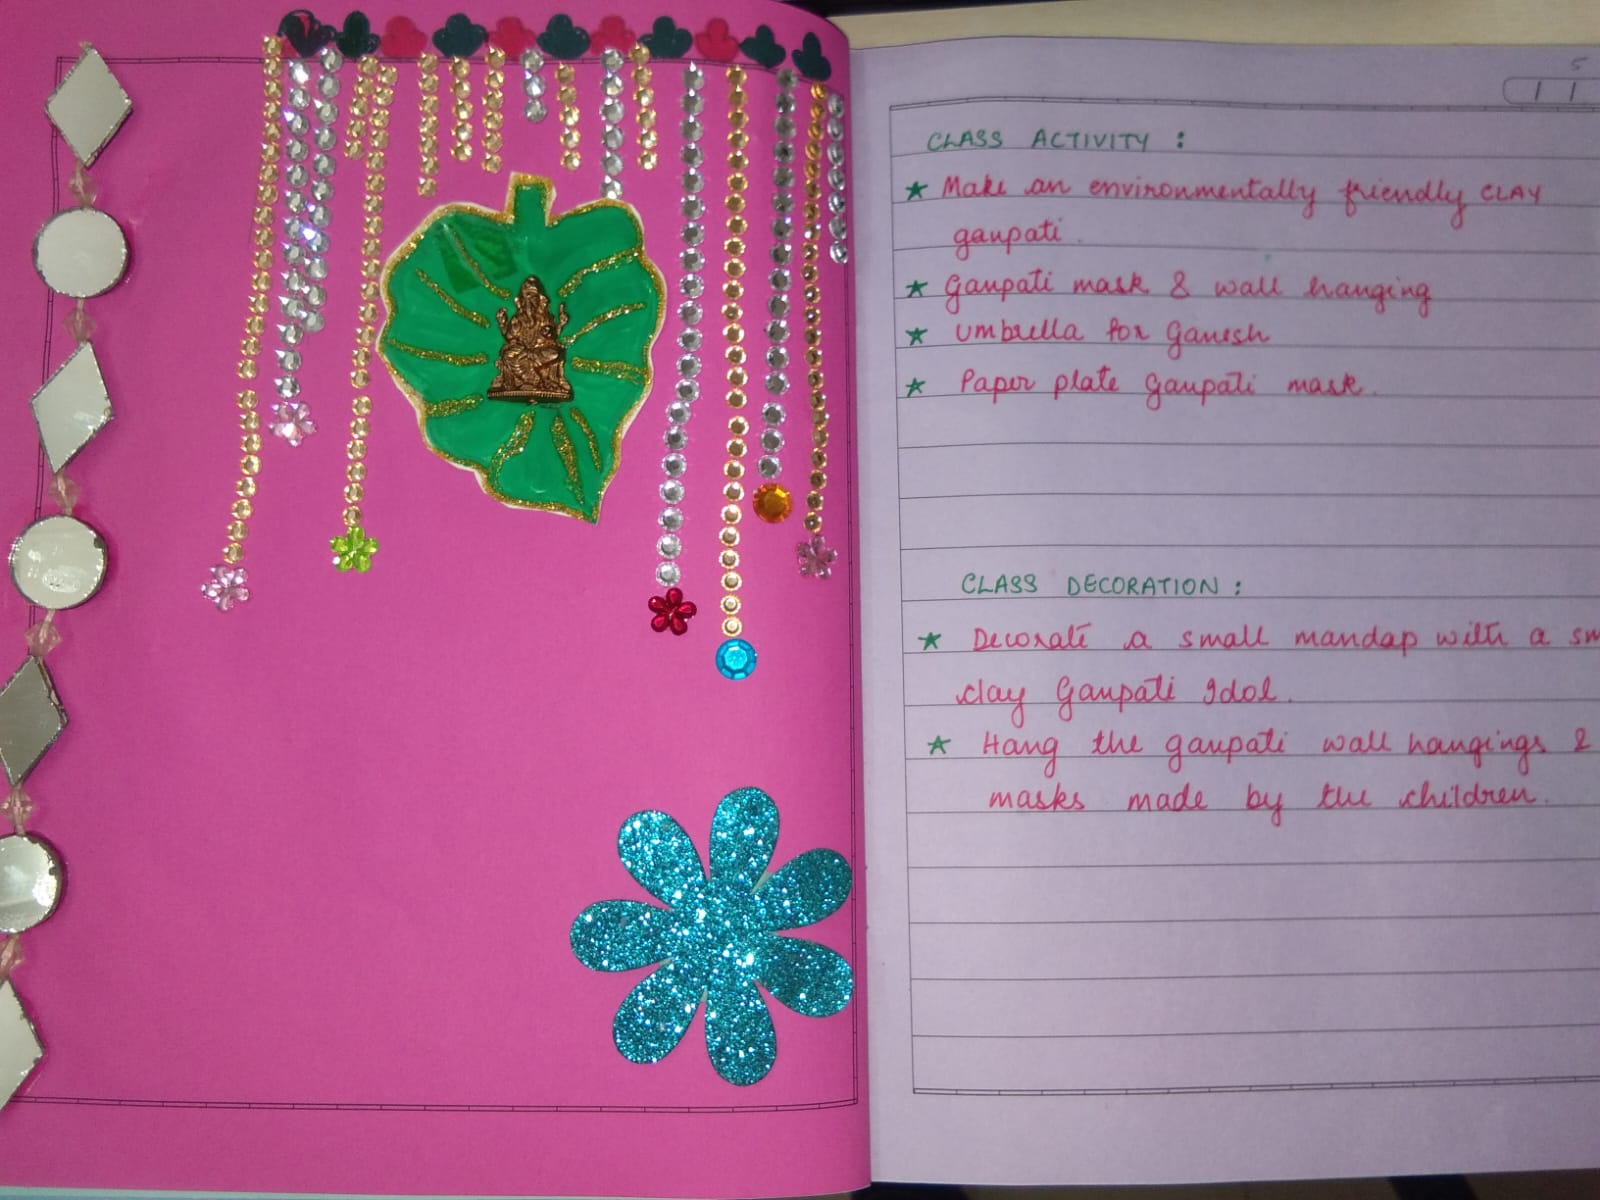 5
CLASS ACTIVITY :
★ Make an environmentally friendly CLAY
ganpati.
★ Ganpati mask & wall hanging
★ Umbrella for Ganesh
★ Paper plate Ganpati mask.
CLASS DECORATION :
★ Decorate a small mandap with a sm
clay Ganpati Idol.
★ Hang the ganpati wall hangings &
masks made by the children.